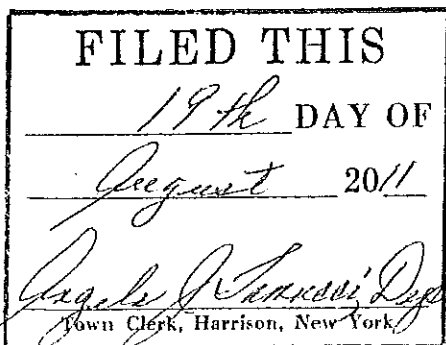 FILED THIS
19th DAY OF
August 2011
Angela J
Town Clerk, Harrison, New York